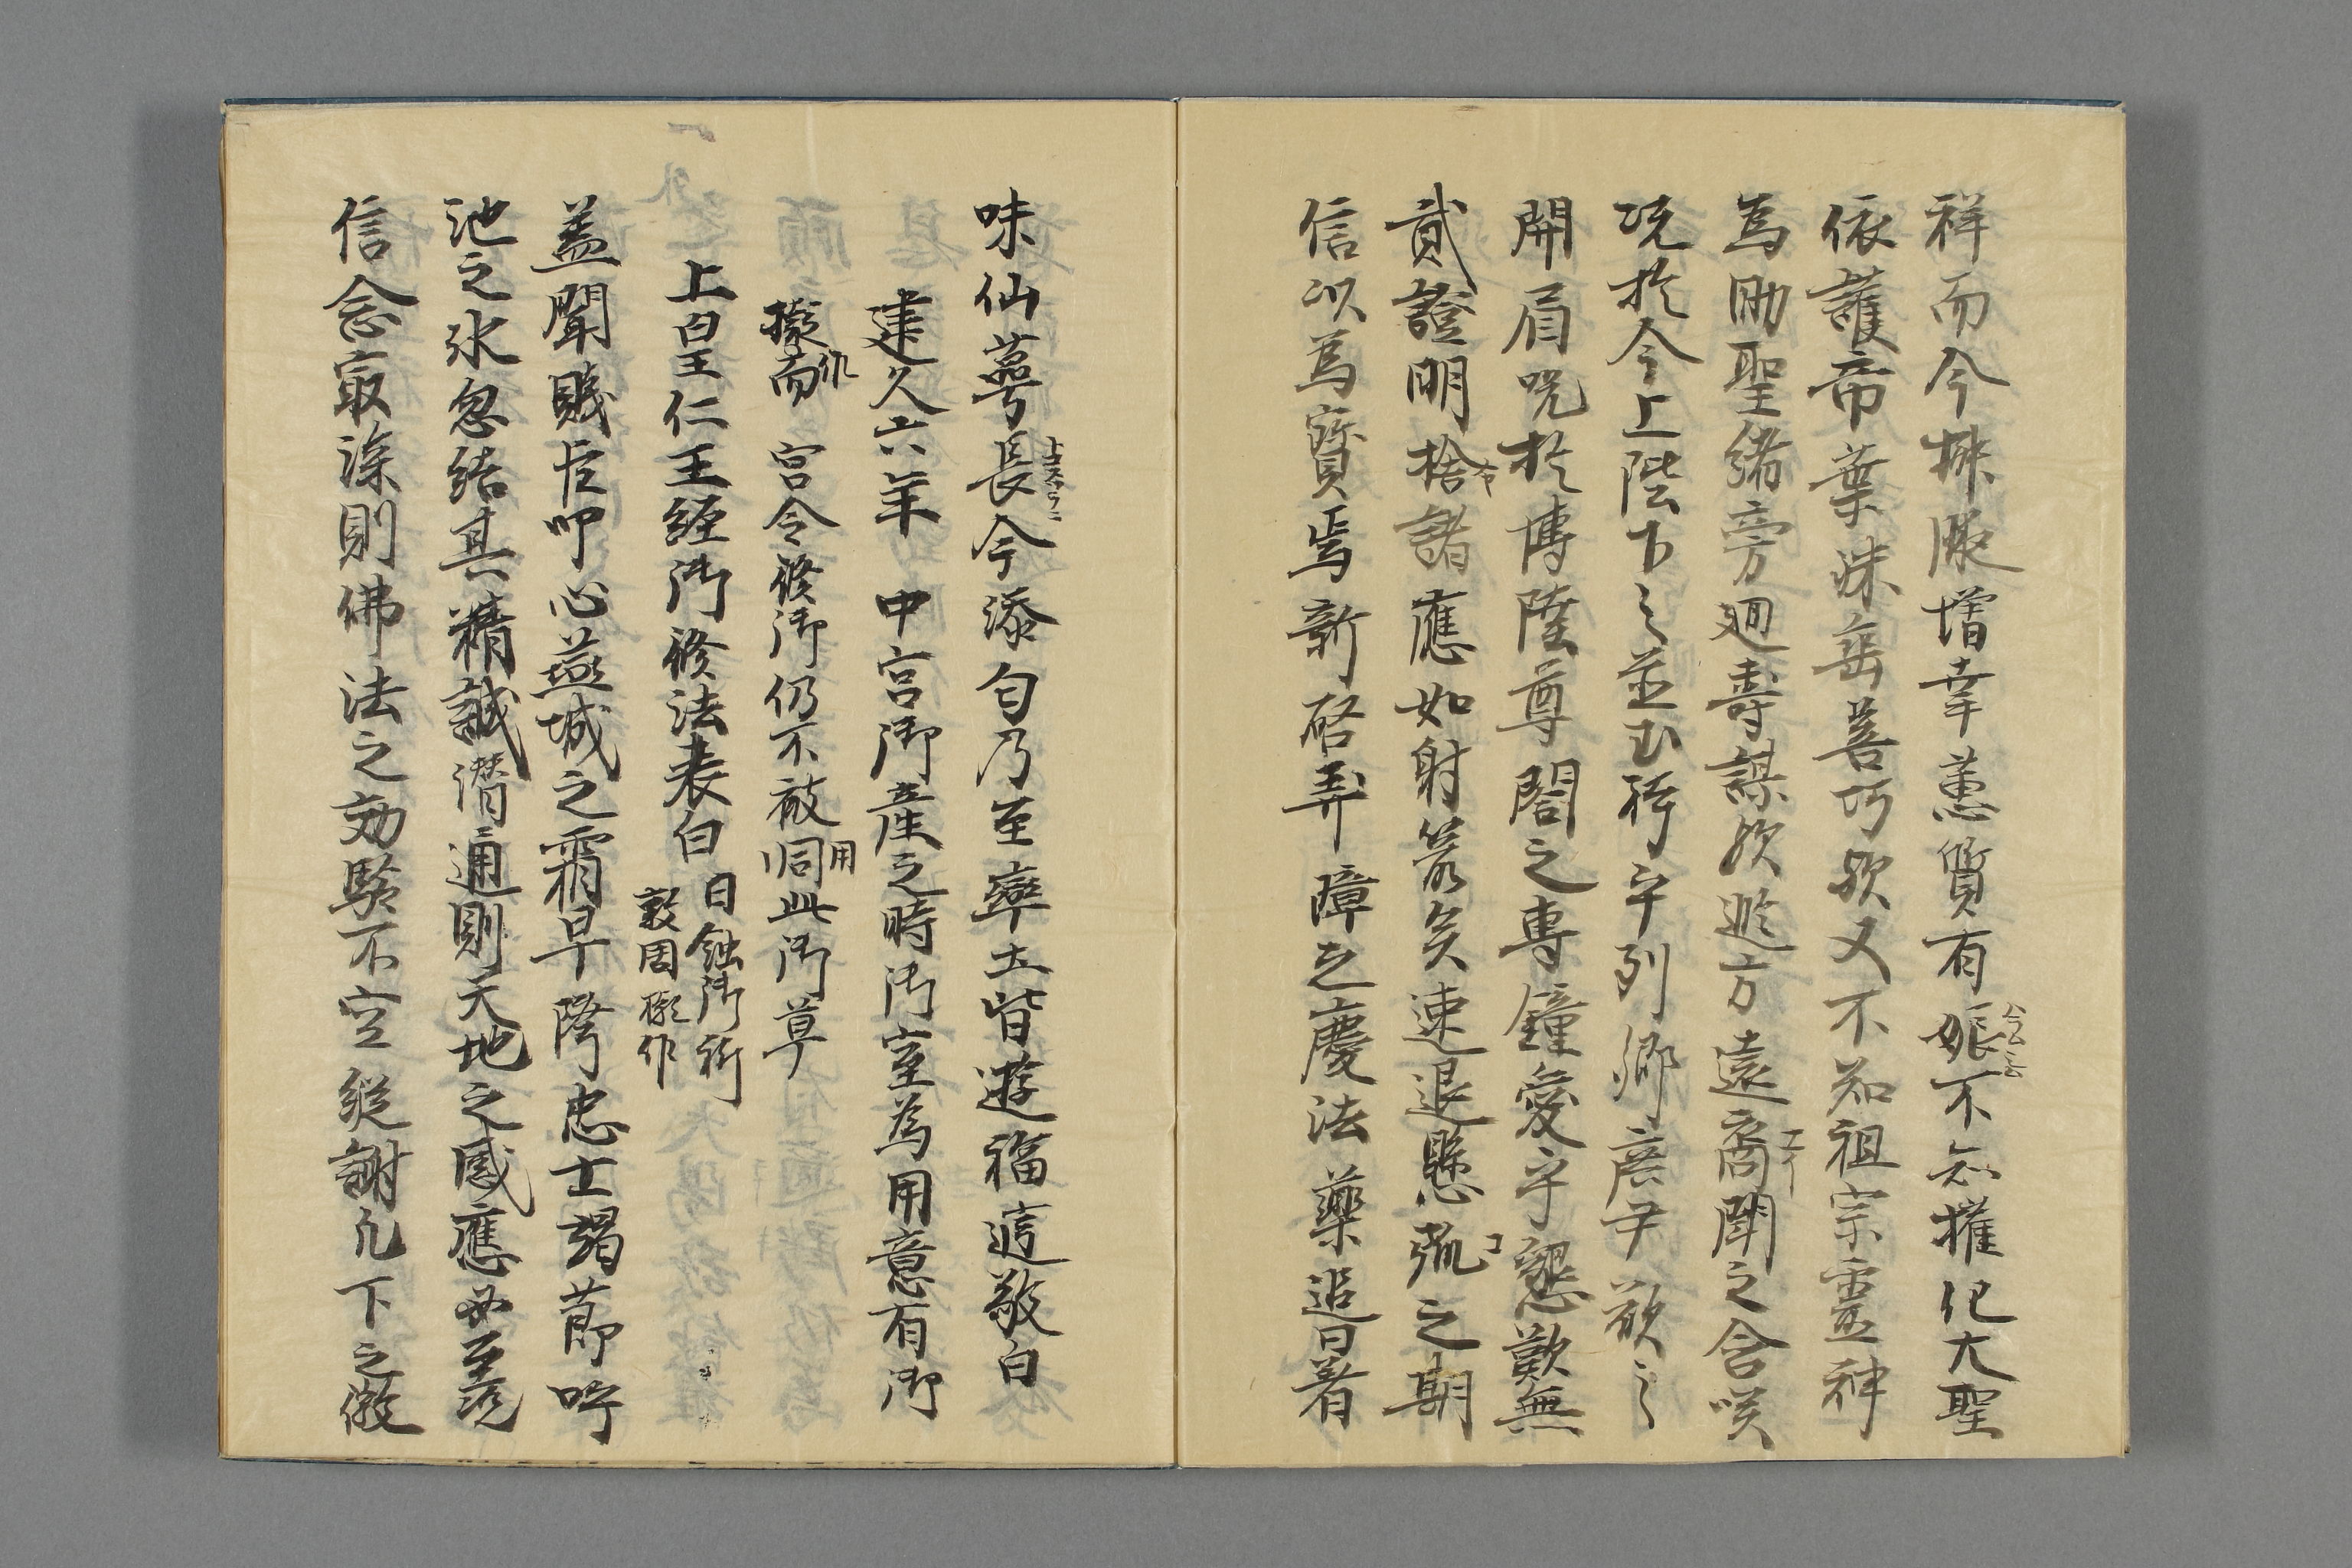 祥而今掖增幸蕙質有娠不知權化大聖
依護帝葉殊善巧欤又不知祖宗靈神
為助聖緒旁廻壽謀欤方遠裔聞之含咲
况於今上陛下之列卿庶尹歡之
開眉况於博陸尊閤之專鍾愛乎懇歎無
貳證明捨諸應如射矣速退懸弧之期
信以為寳焉新啓弄障之慶法藥追日著
味仙蕚長今添匀乃至率土皆遊福這敬白
建久六年 中宮御產之時御室為用意有御
作
擬而 宮令修御仍不被用此御草
上白王仁王經御修法表白 日蝕御祈
敦周作
蓋聞賤臣叩心燕城之霜早降忠士謁節呼
池之氷忽結其精誠潛通則天地之感應必至况
信念寂深則佛法之効驗不空縱謝凡下之